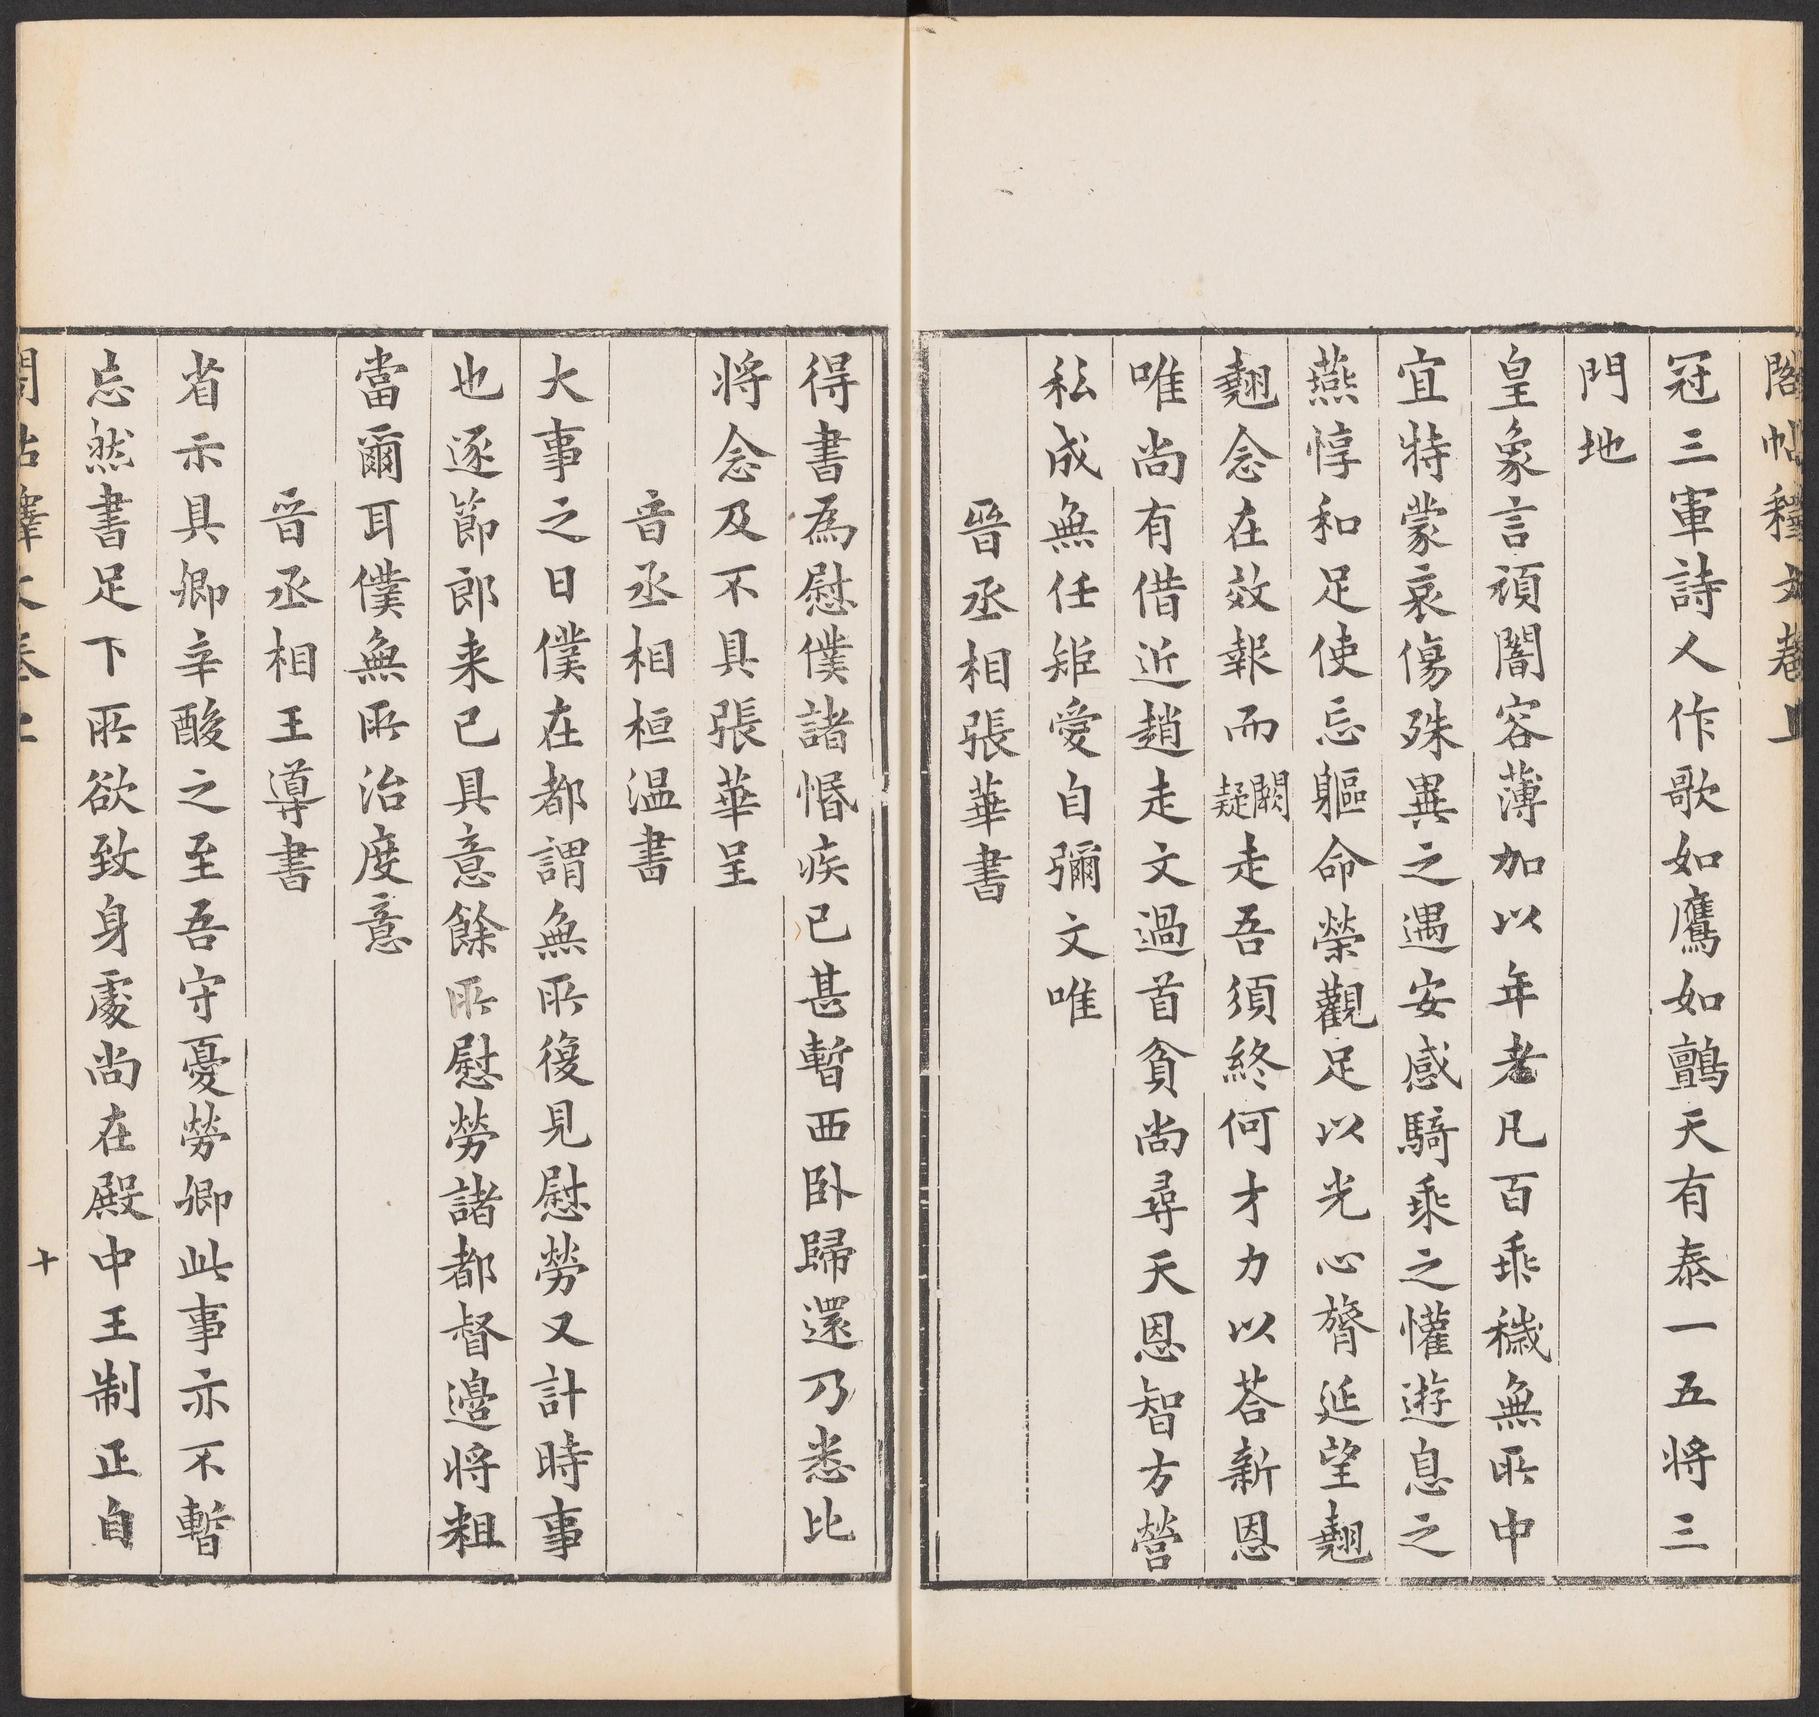 閣帖釋文卷上
冠三軍詩人作歌如鷹如鸇天有泰一五將三
門地
皇象言頑闇容薄加以年老凡百乖穢無所中
宜特蒙哀傷殊異之遇安感騎乘之懽遊息之
燕惇和足使忘軀命榮觀足以光心膂延望翹
翹念在效報而闕疑走吾須終何才力以荅新恩
唯尚有借近趙走文過首貧尚尋天恩智方營
私成無任矩愛自彌文唯
晉丞相張華書
得書為慰僕諸惛疾已甚暫西臥歸還乃悉比
將念及不具張華呈
晉丞相桓温書
大事之日僕在都謂無所復見慰勞又計時事
也逐節郎来已具意餘所慰勞諸都督邉將粗
當爾耳僕無所治度意
晉丞相王導書
省示具卿辛酸之至吾守憂勞卿此事亦不暫
忘然書足下所欲致身處尚在殿中王制正自
閣帖釋文卷上
十